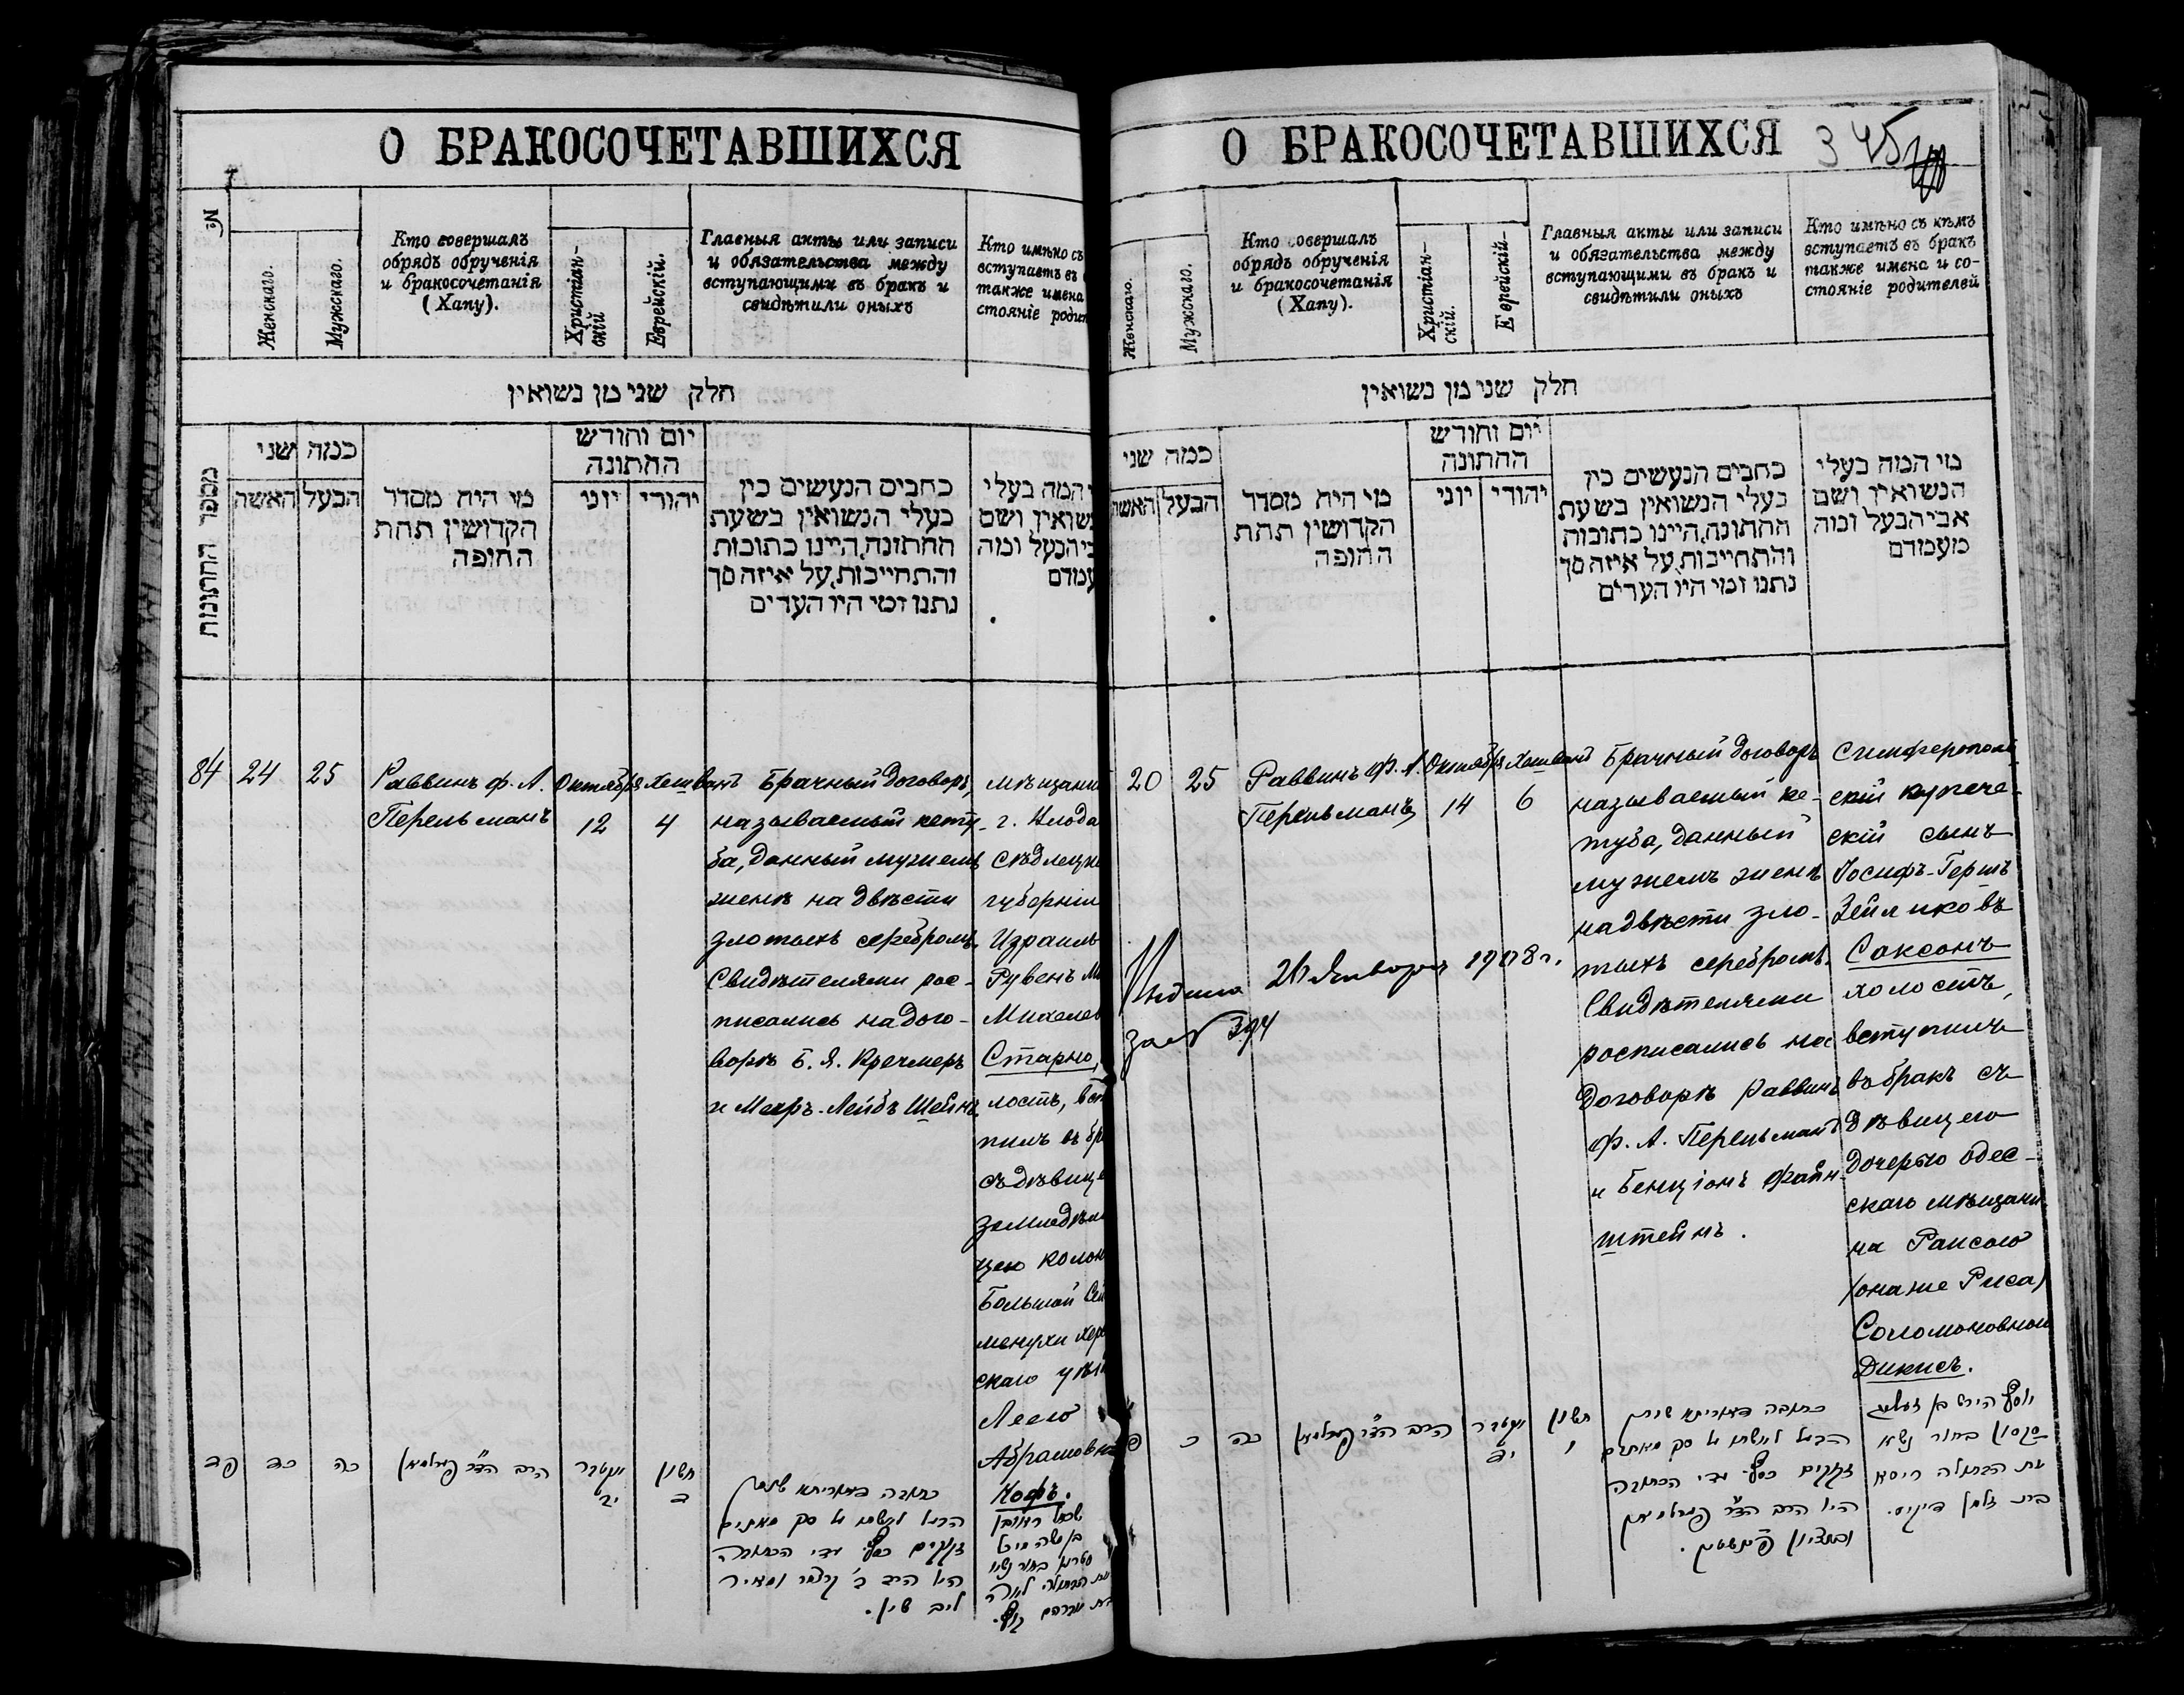 О БРАКОСОЧЕТАВШИХСЯ
№
Женскаго.
Мужскаго.
Кто совершалъ
обрядъ обрученія
и бракосочетанія
(Хапу).
Христіан-
скій
Еврейскій.
Главныя акты или записи
и обязательства между
вступающими въ бракъ и
свидѣтили оныхъ
Кто имѣно съ
вступаетъ въ
также имена
стояніе родит
חלק שני מן נשואין
מספר החתונות
כמה שני
האשה
הבעל
מי היה מסדר
הקדושין תחת
החופה
יום וחודש
החתונה
יוני
יהודי
כתבים הנעשים בין
בעלי הנשואין בשעת
החתונה, היינו כתובות
והתחייבות, על איזה סך
נתנו ומי היו העדים
המה בעלי
נשואין ושם
בי הבעל ומה
עמדם
84
24
25
Раввинъ Ф. А.
Перельманъ
Октября
12
Хешванъ
4
Брачный договоръ,
называемый кету-
ба, данный мужемъ
женѣ на двѣсти
злотыхъ серебромъ.
Свидѣтелями рос-
писались на дого-
ворѣ Б. Я. Кречмеръ
и Меэръ-Лейбъ Шейнъ
мѣщани
г. Влода
Сѣдлецко
губерніи
Израиль
Рувенъ М
Михелев
Старно,
лостъ, вст
пилъ въ бр
съ дѣвице
земледѣл
цею колон
Большой Сей
менухи Хер
скаго уѣз
Леею
Абрамовн
Кофъ.
פד
כד
כה
הרב הד״ר פערלמאן
אקטבר
יב
חשון
ד
כתובה דאוריתא שנתן
הבעל לאשתו על סך מאתים
זקוקים כסף. עדי הכתובה
ליב שיין.
О БРАКОСОЧЕТАВШИХСЯ
345
Женскаго.
Мужскаго.
Кто совершалъ
обрядъ обрученія
и бракосочетанія
(Хапу).
Христіан-
скій.
Еврейскій-
Главныя акты или записи
и обязательства между
вступающими въ бракъ и
свидѣтили оныхъ
Кто имѣно съ кѣмъ
вступаетъ въ бракъ
также имена и со-
стояніе родителей
חלק שני מן נשואין
כמה שני
האשה
הבעל
מי היה מסדר
הקדושין תחת
החופה
יום וחודש
החתונה
יוני
יהודי
כתבים הנעשים בין
בעלי הנשואין בשעת
החתונה, היינו כתובות
והתחייבות, על איזה סך
נתנו ומי היו העדים
מי המה בעלי
הנשואין ושם
אבי הבעל ומה
מעמדם
20
25
Раввинъ Ф. А.
Перельманъ
Октября
14
Хешванъ
6
Брачный договоръ
называемый ке-
туба, данный
мужемъ женѣ
на двѣсти зло-
тыхъ серебромъ.
Свидѣтелями
росписались на
договорѣ раввинъ
Ф. А. Перельманъ
и Бенціонъ Файн-
штейнъ.
Симферополь
скій купече-
скій сынъ
Іосифъ-Гершъ
Зейликовъ
Саксонъ
холостъ,
вступилъ
въ бракъ съ
дѣвицею
дочерью одес-
скаго мѣщани
на Раисою
(она же Риса)
Соломоновной
Дикисъ.
26 Января 1908 г.
394
כ
כה
הרב הד״ר פערלמאן
אקטבר
יד
חשון
ו
כתובה דאוריתא שנתן
הבעל לאשתו על סך מאתים
זקוקים כסף. עדי הכתובה
היו הרב הד״ר פערלמאן
ובנציון פינשטיין.
יוסף הירש בן זעליג
סקסון בחור נשא
את הבתולה ריסא
בת זלמן דיקיס.